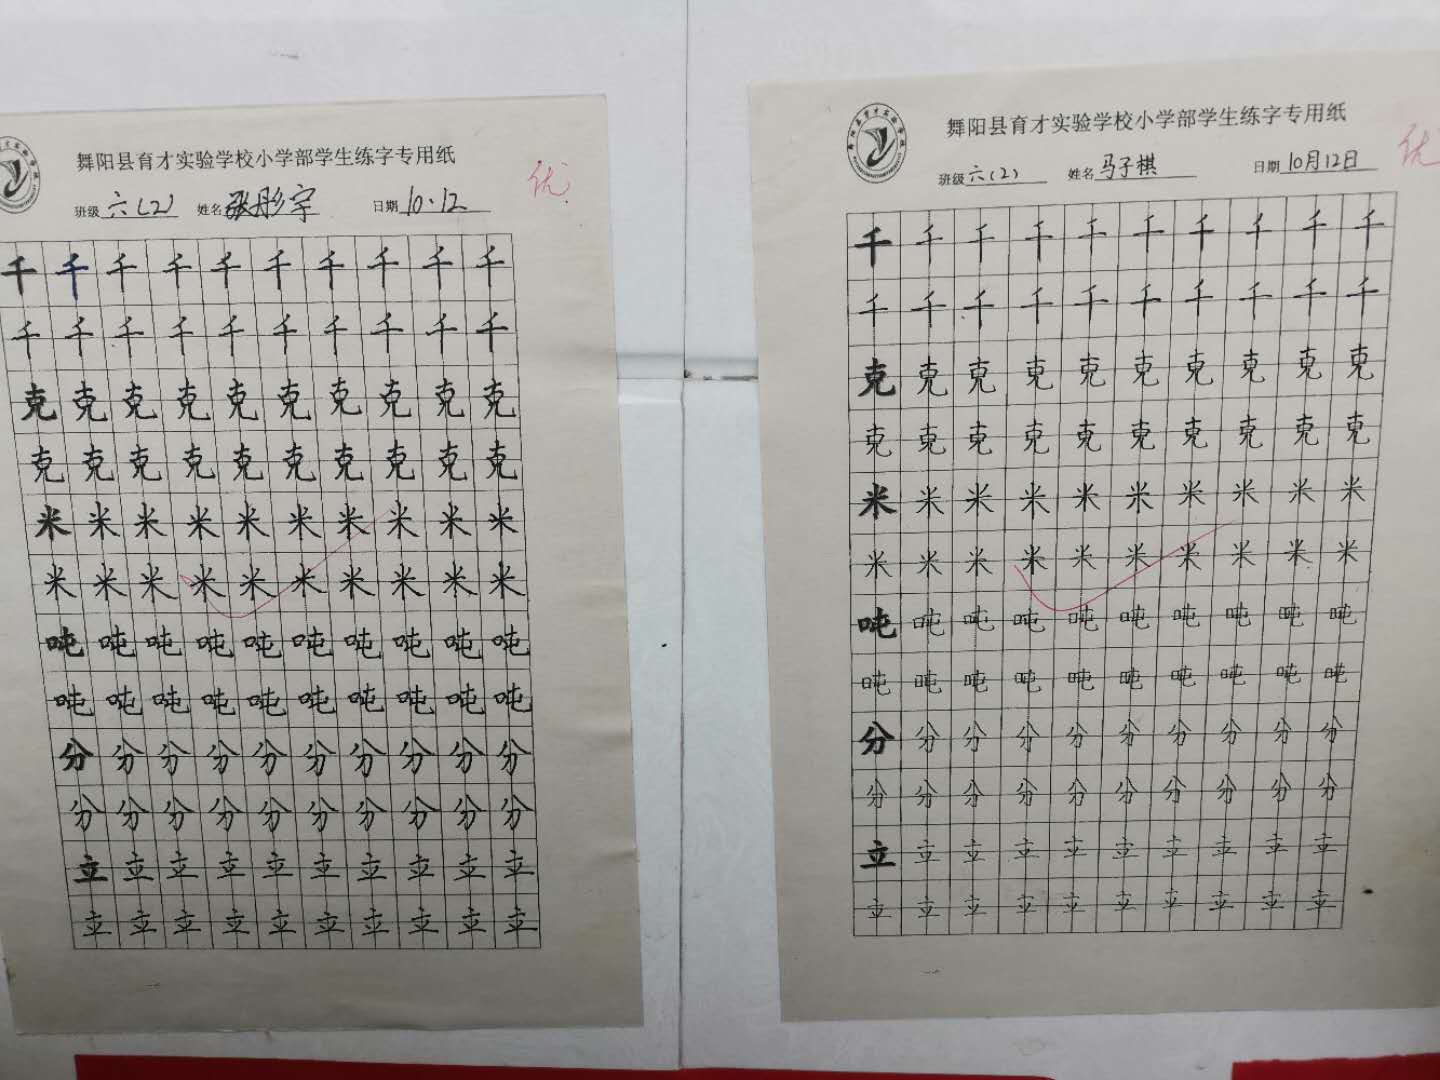 舞阳县育才实验学校小学部学生练字专用纸
优
班级 六(2) 姓名 张彤宇 日期 10.12
千千千千千千千千千千
千千千千千千千千千千
克克克克克克克克克克
克克克克克克克克克克
米米米米米米米米米米
米米米米米米米米米米
吨吨吨吨吨吨吨吨吨吨
吨吨吨吨吨吨吨吨吨吨
分分分分分分分分分分
分分分分分分分分分分
立立立立立立立立立立
立立立立立立立立立立
舞阳县育才实验学校小学部学生练字专用纸
优
班级 六(2) 姓名 马子棋 日期 10月12日
千千千千千千千千千千
千千千千千千千千千千
克克克克克克克克克克
克克克克克克克克克克
米米米米米米米米米米
米米米米米米米米米米
吨吨吨吨吨吨吨吨吨吨
吨吨吨吨吨吨吨吨吨吨
分分分分分分分分分分
分分分分分分分分分分
立立立立立立立立立立
立立立立立立立立立立